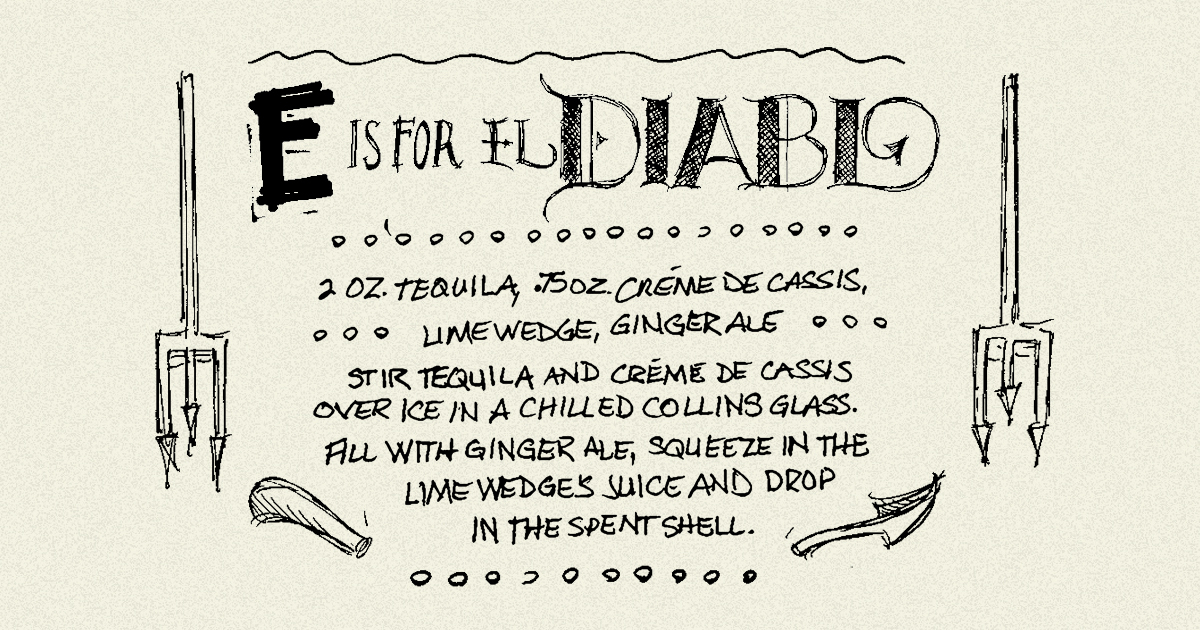 E IS FOR EL DIABLO
2 OZ. TEQUILA, .75 OZ. CRÉME DE CASSIS,
LIME WEDGE, GINGER ALE
STIR TEQUILA AND CRÉME DE CASSIS
OVER ICE IN A CHILLED COLLINS GLASS.
FILL WITH GINGER ALE, SQUEEZE IN THE
LIME WEDGE'S JUICE AND DROP
IN THE SPENT SHELL.